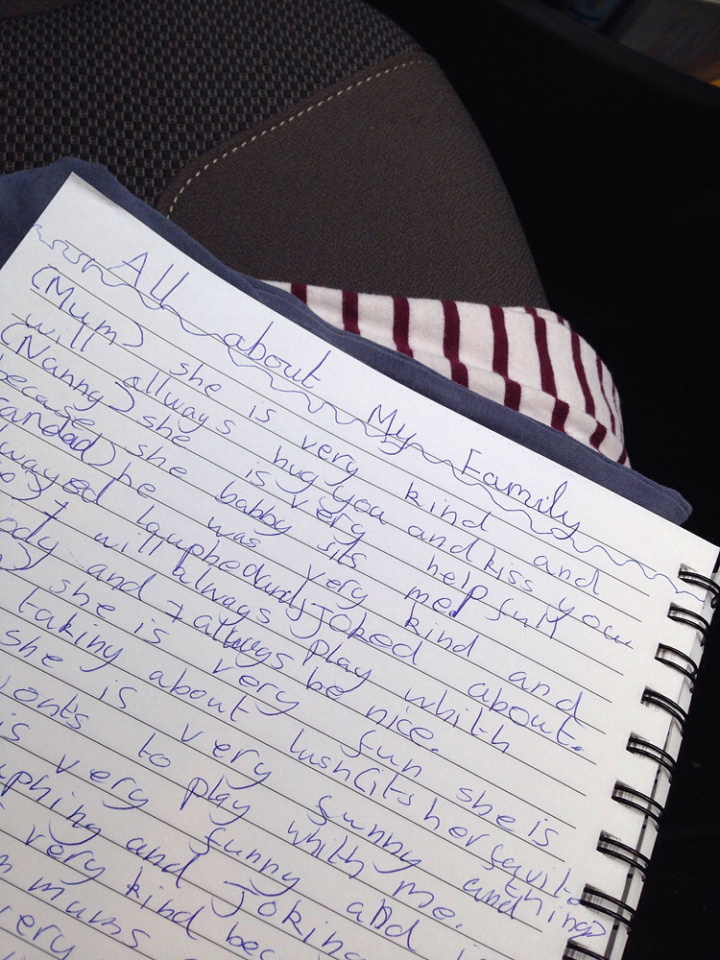 All about My Family
(Mum) she is very kind and
will allways hug you and kiss you.
(Nanny) she is very helpfull
because she babby sits me
andad) he was very kind and
wayed lauphed and Joked about.
I will always play whith
ody and I allways be nice.
she is very fun she is
taking about lush (its her thing)
she is very funny and
onts to play whith me.
is very funny and is
aphing and Joking
very kind bec
mums
very